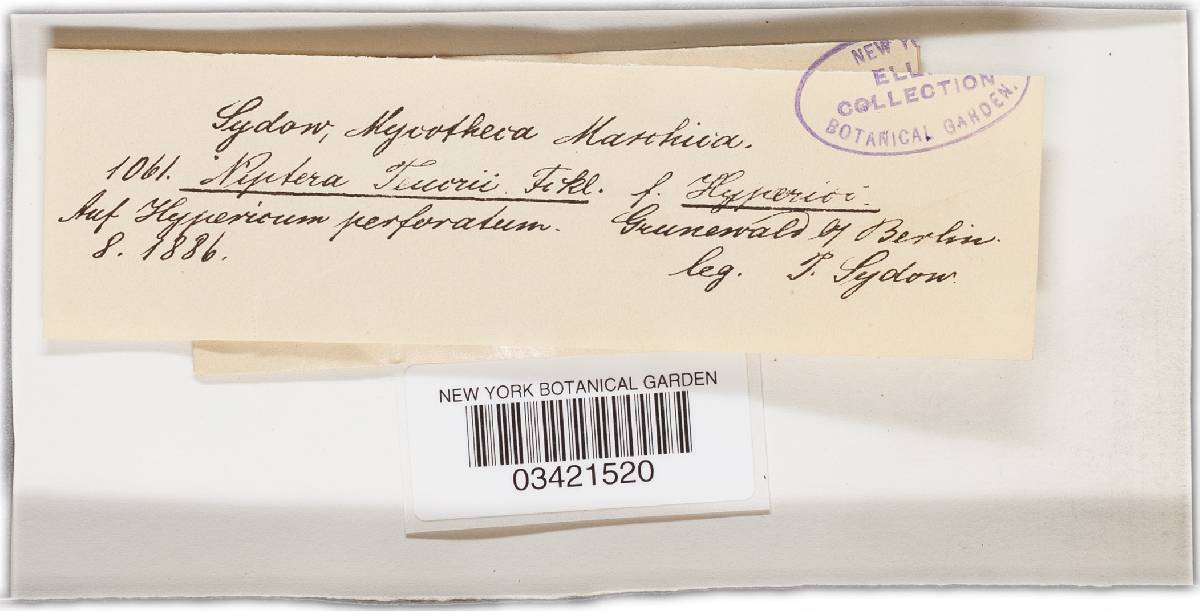 NEW Y
ELL
COLLECTION
BOTANICAL GARDEN.
Sydow, Mycotheca Marchica.
1061. Niptera Teucrii Fckl. f. Hyperici.
Auf Hypericum perforatum. Grunewald b/ Berlin.
8. 1886. leg. P. Sydow.
NEW YORK BOTANICAL GARDEN
03421520